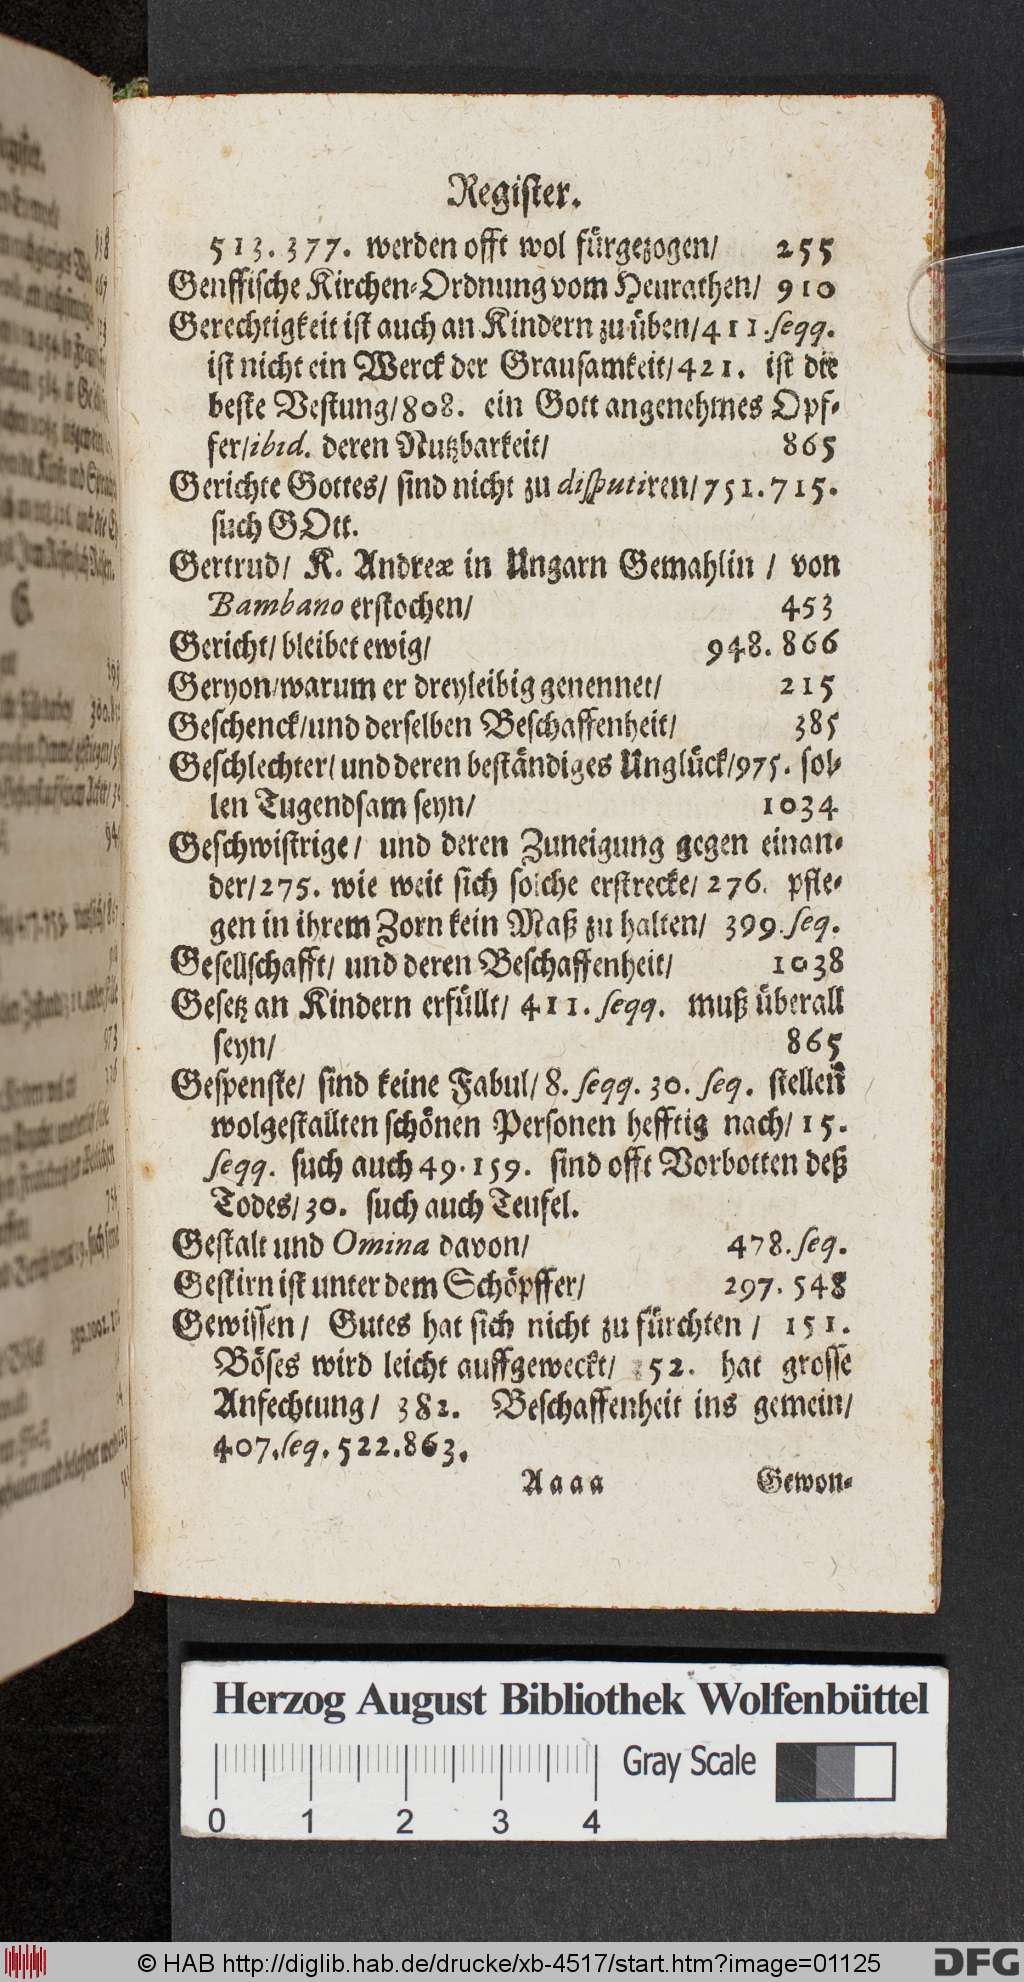 Register.
513. 377. werden offt wol fürgezogen/ 255
Genffische Kirchen-Ordnung vom Heurathen/ 910
Gerechtigkeit ist auch an Kindern zu üben/ 411. seqq.
ist nicht ein Werck der Grausamkeit/ 421. ist die
beste Vestung/ 808. ein Gott angenehmes Opf-
fer/ ibid. deren Nutzbarkeit/ 865
Gerichte Gottes/ sind nicht zu disputiren/ 751. 715.
such GOtt.
Gertrud/ K. Andreæ in Ungarn Gemahlin / von
Bambano erstochen/ 453
Gericht/ bleibet ewig/ 948. 866
Geryon/ warum er dreyleibig genennet/ 215
Geschenck/ und derselben Beschaffenheit/ 385
Geschlechter/ und deren beständiges Unglück/ 975. sol-
len Tugendsam seyn/ 1034
Geschwistrige/ und deren Zuneigung gegen einan-
der/ 275. wie weit sich solche erstrecke/ 276. pfle-
gen in ihrem Zorn kein Maß zu halten/ 399. seq.
Gesellschafft/ und deren Beschaffenheit/ 1038
Gesetz an Kindern erfüllt/ 411. seqq. muß überall
seyn/ 865
Gespenste/ sind keine Fabul/ 8. seqq. 30. seq. stellen
wolgestallten schönen Personen hefftig nach/ 15.
seqq. such auch 49. 159. sind offt Vorbotten deß
Todes/ 30. such auch Teufel.
Gestalt und Omina davon/ 478. seq.
Gestirn ist unter dem Schöpffer/ 297. 548
Gewissen/ Gutes hat sich nicht zu fürchten / 151.
Böses wird leicht auffgeweckt/ 52. hat grosse
Anfechtung/ 382. Beschaffenheit ins gemein/
407. seq. 522. 863.
Aaaa Gewon-
Herzog August Bibliothek Wolfenbüttel
Gray Scale
0 1 2 3 4
© HAB http://diglib.hab.de/drucke/xb-4517/start.htm?image=01125
DFG